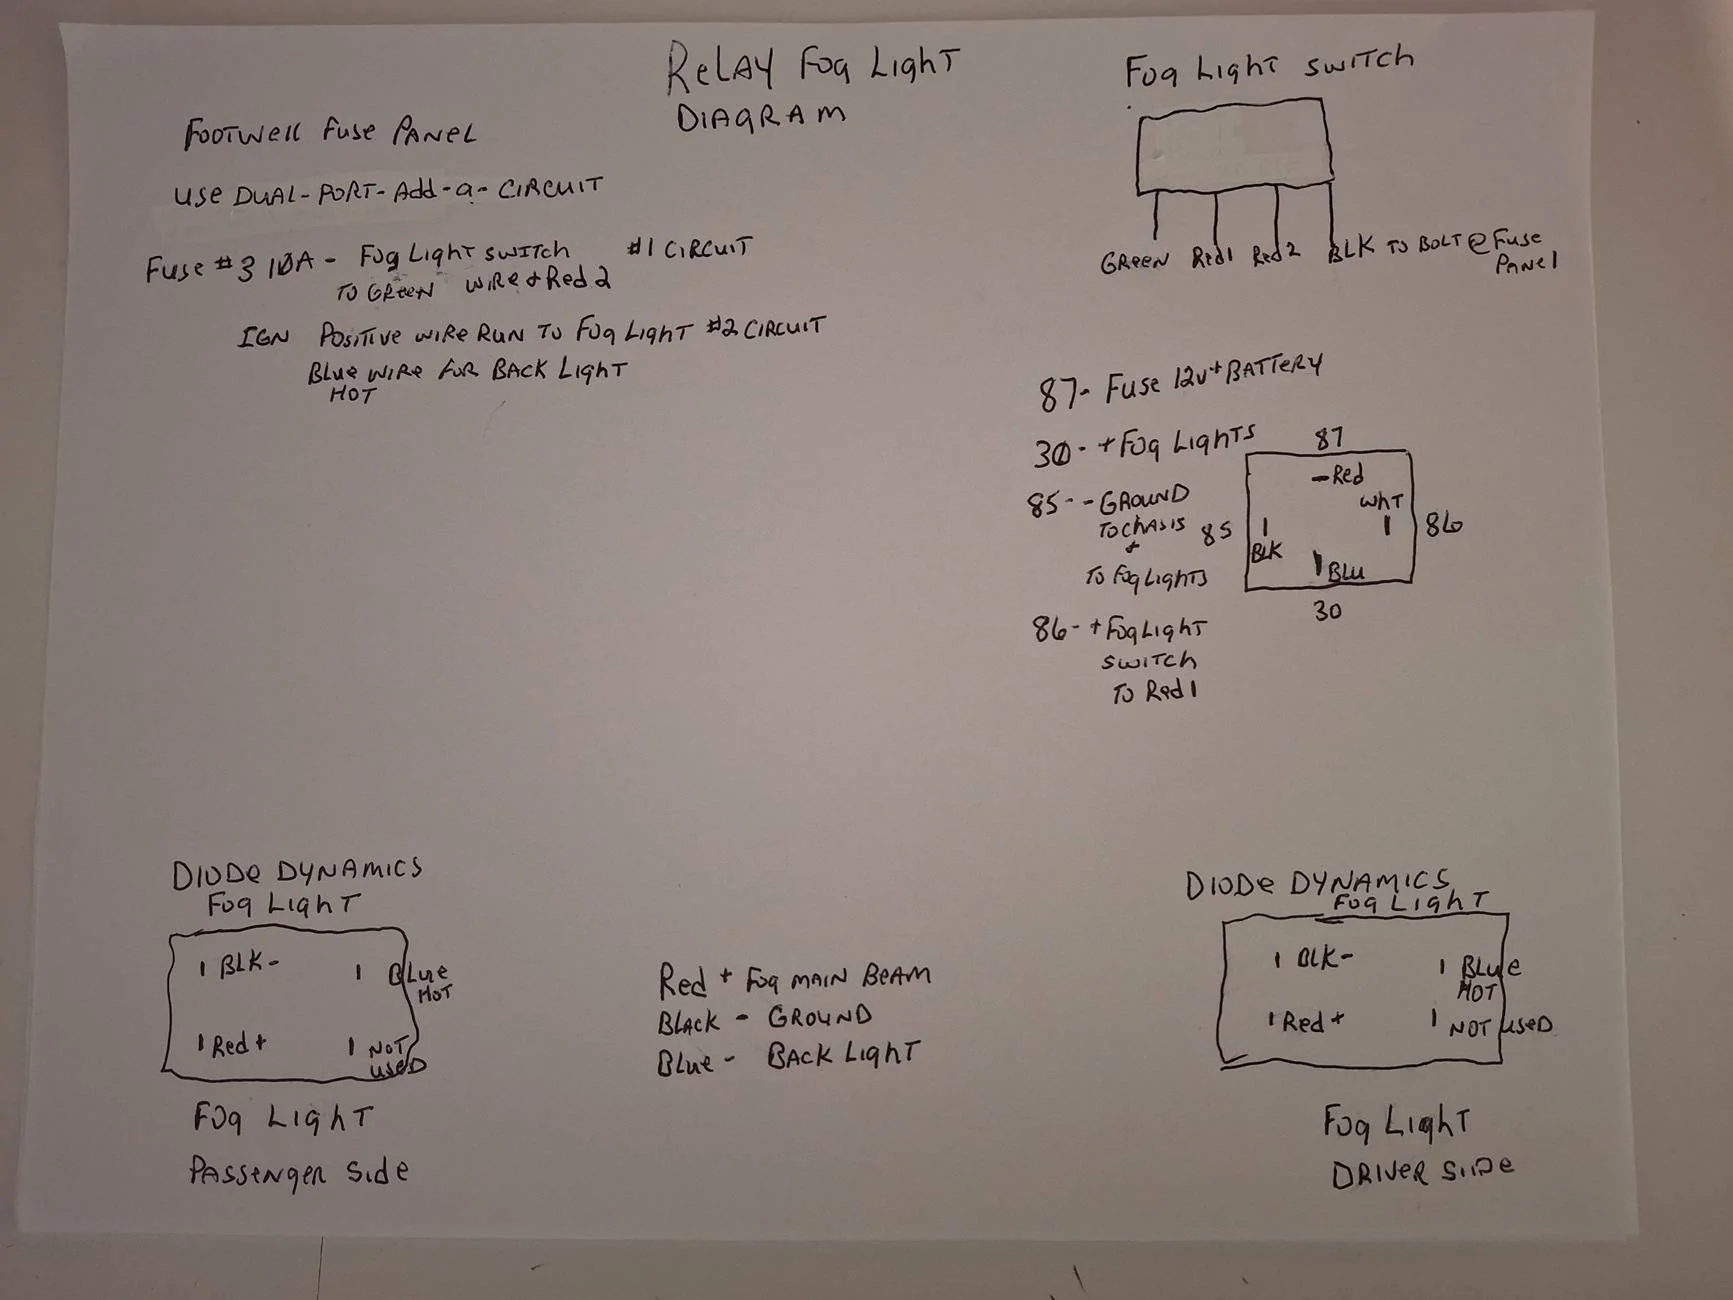 RELAY FOG LIGHT
DIAGRAM
FOOTWELL FUSE PANEL
USE DUAL-PORT-Add-a-CIRCUIT
FUSE #3 10A - FOG LIGHT SWITCH #1 CIRCUIT
TO GREEN WIRE + Red 2
IGN POSITIVE WIRE RUN TO FOG LIGHT #2 CIRCUIT
BLUE WIRE FOR BACK LIGHT
HOT
FOG LIGHT SWITCH
GREEN Red1 Red2 BLK TO BOLT @ FUSE
PANEL
87- FUSE 12v+ BATTERY
30- + FOG LIGHTS
85- - GROUND
TO CHASIS
+
TO FOG LIGHTS
86- + FOG LIGHT
SWITCH
TO Red 1
87
-Red
WHT
85
86
BLK
BLU
30
DIODE DYNAMICS
FOG LIGHT
BLK-
BLUE
HOT
Red +
NOT
USED
FOG LIGHT
PASSENGER SIDE
Red + FOG MAIN BEAM
BLACK - GROUND
BLUE - BACK LIGHT
DIODE DYNAMICS
FOG LIGHT
BLK-
BLUE
HOT
Red +
NOT USED
FOG LIGHT
DRIVER SIDE